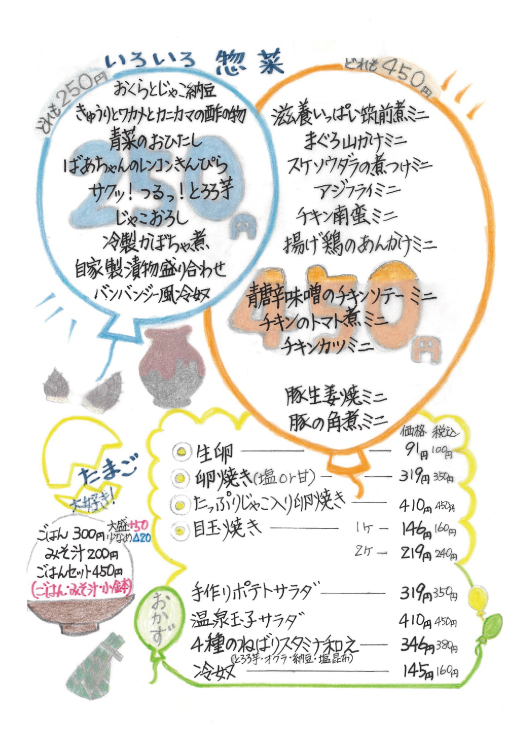 いろいろ 惣菜
どれも250円
おくらとじゃこ納豆
きゅうりとワカメとカニカマの酢の物
青菜のおひたし
ばあちゃんのレンコンきんぴら
サクッ!つるっ!とろろ芋
じゃこおろし
冷製かぼちゃ煮
自家製漬物盛り合わせ
バンバンジー風冷奴
250円
どれも450円
滋養いっぱい筑前煮ミニ
まぐろ山かけミニ
スケソウダラの煮つけミニ
アジフライミニ
チキン南蛮ミニ
揚げ鶏のあんかけミニ
青唐辛味噌のチキンソテーミニ
チキンのトマト煮ミニ
チキンカツミニ
豚生姜焼ミニ
豚の角煮ミニ
450円
たまご
大好き!
価格 税込
生卵 91円 100円
卵焼き(塩or甘) 319円 350円
たっぷりじゃこ入り卵焼き 410円 450円
目玉焼き 1ケ 146円 160円
2ケ 219円 240円
ごはん 300円 大盛+50
少なめ△20
みそ汁 200円
ごはんセット450円
(ごはん・みそ汁・小鉢)
おかず
手作りポテトサラダ 319円 350円
温泉玉子サラダ 410円 450円
4種のねばりスタミナ和え 346円 380円
(とろろ芋・オクラ・納豆・塩昆布)
冷奴 145円 160円